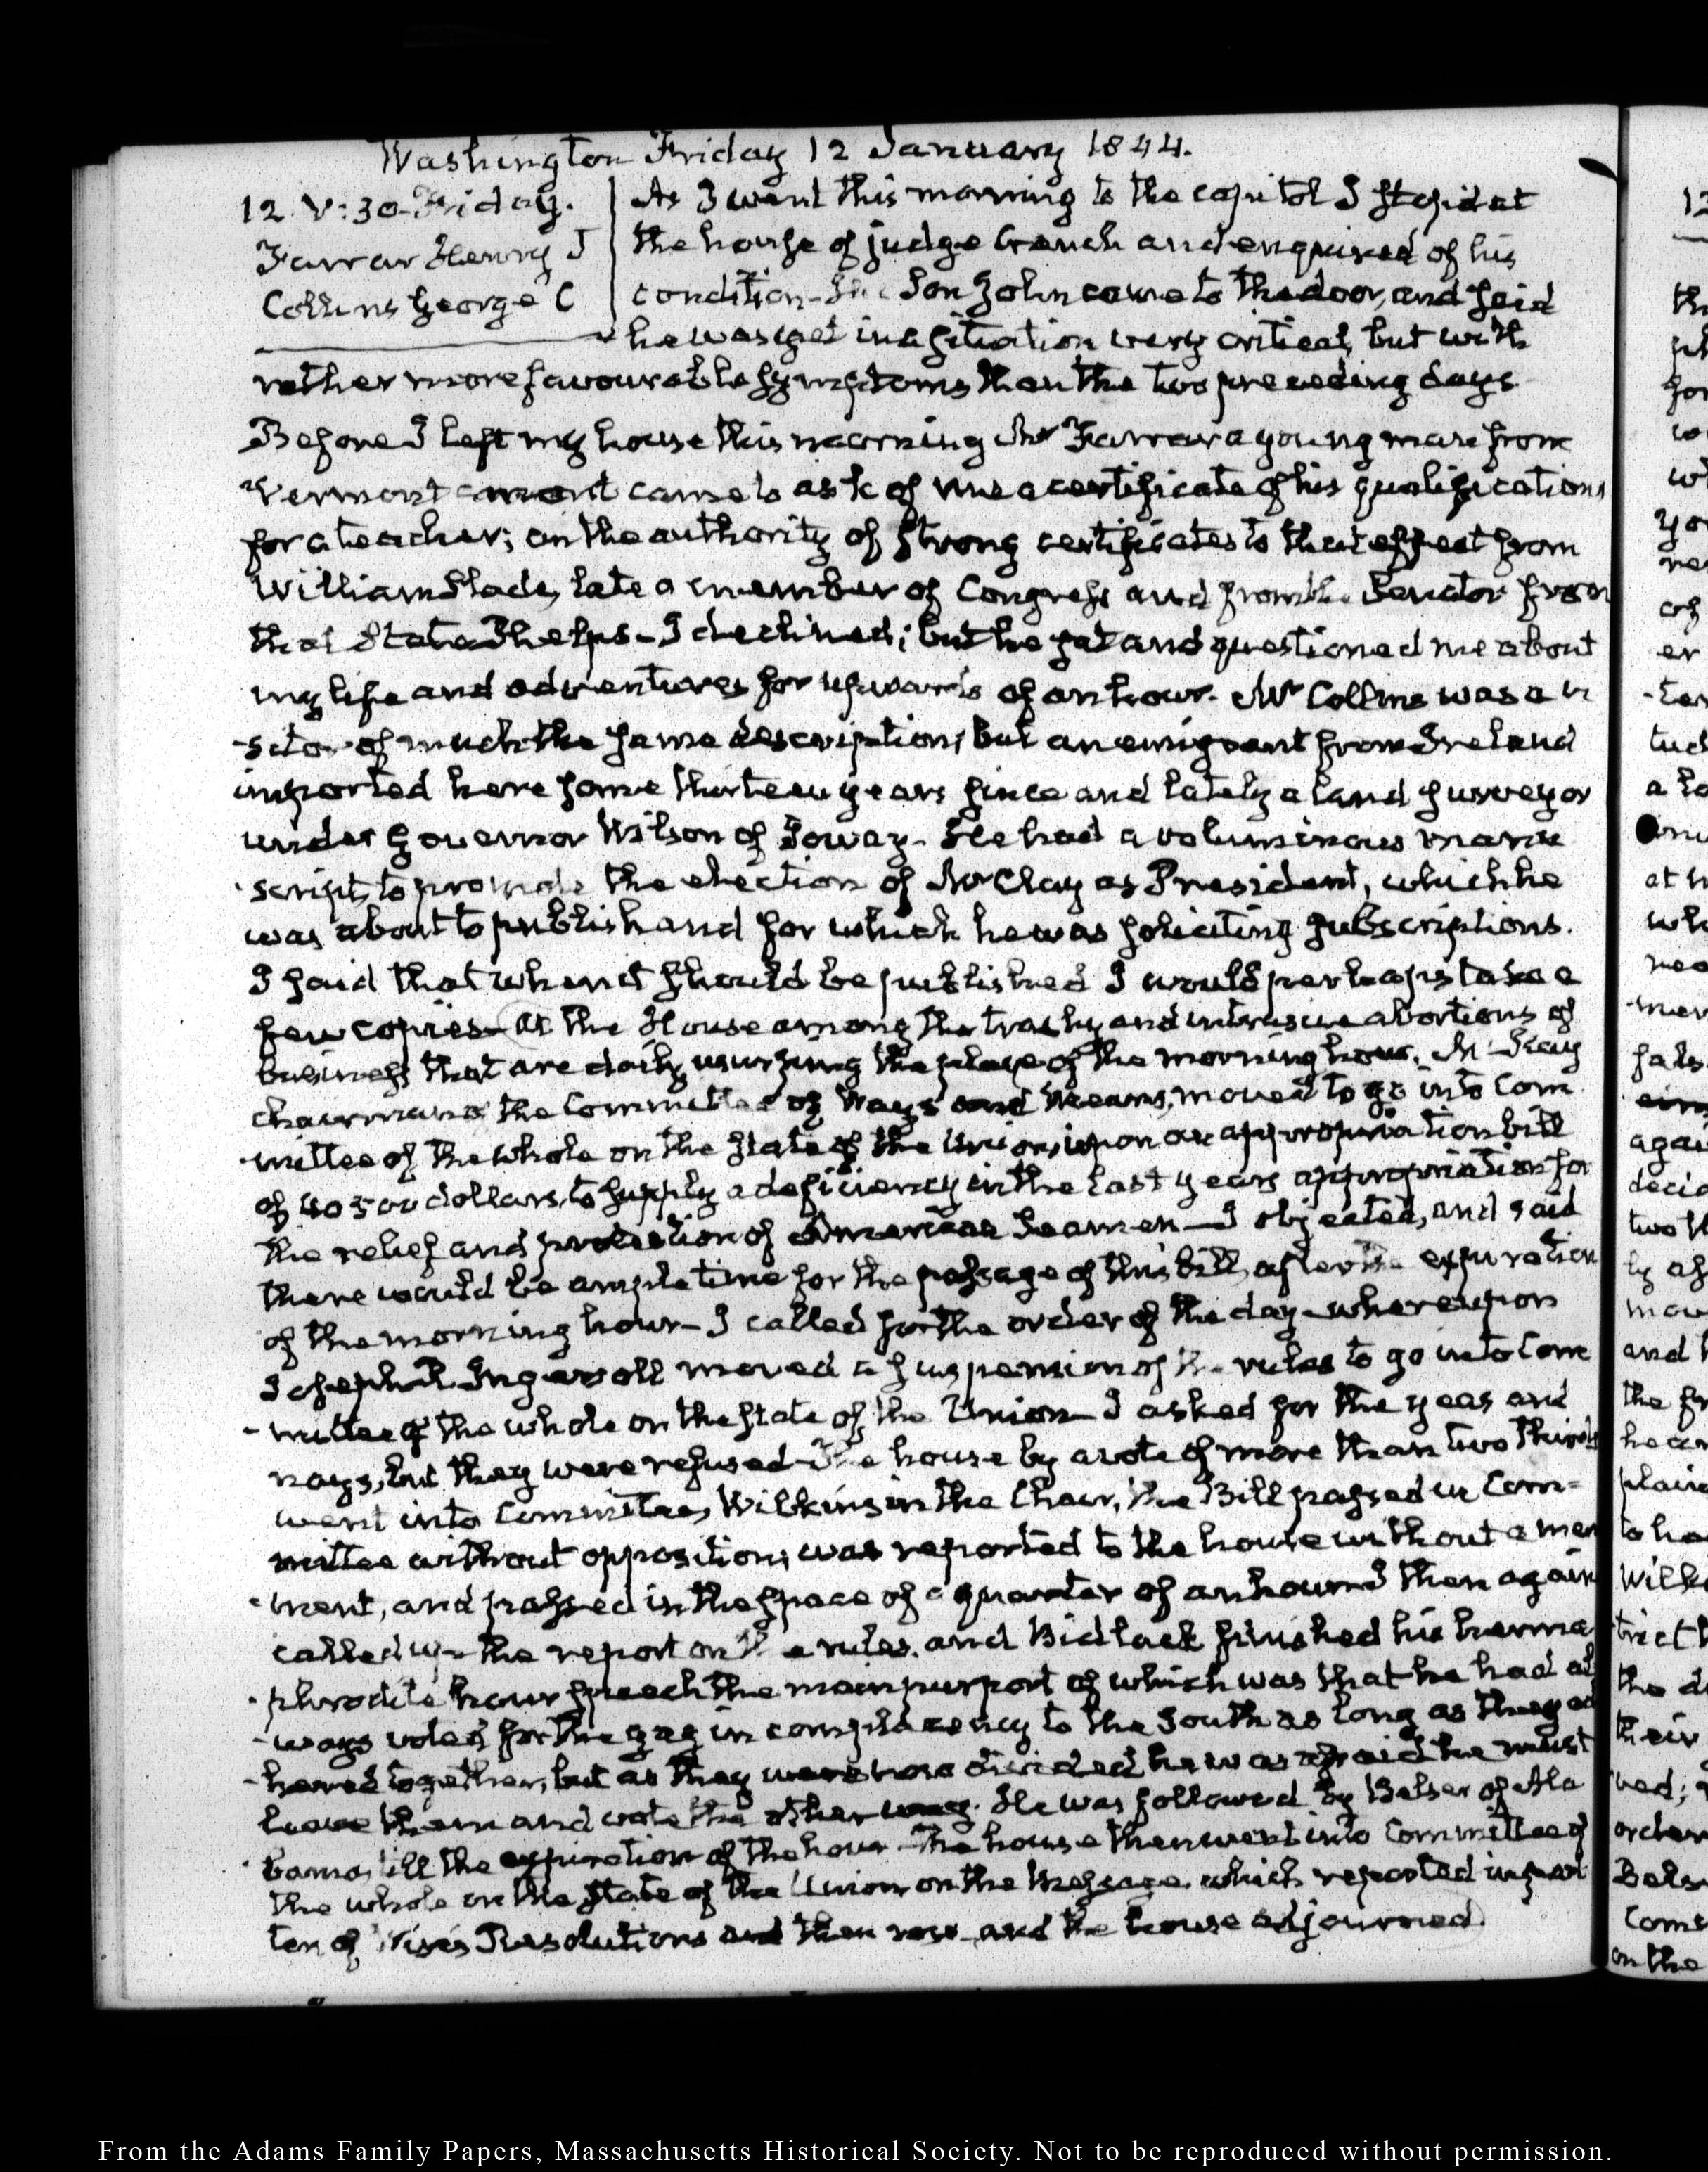 Washington Friday 12 January 1844.
12. V:30. Friday.
Farrar Henry J
Collins George C
As I went this morning to the capitol I stop'd at
the house of judge Cranch and enquired of his
condition– His Son John came to the door, and said
he was yet in a situation very critical, but with
rather more favourable symptoms than the two preceding days
Before I left my house this morning Mr Farrar a young man from
Vermont came to ask of me a certificate of his qualifications
for a teacher; on the authority of strong certificates to that effect from
William Slade, late a member of Congress and from the Senator from
that State Phelps– I declined; but he sat and questioned me about
my life and adventures for upwards of an hour. Mr Collins was a vi
-sitor of much the same description; but an emigrant from Ireland
imported here some thirteen years since and lately a land surveyor
under Governor Wilson of Ioway. He had a voluminous manu
-script, to promote the election of Mr Clay as President, which he
was about to publish and for which he was soliciting subscriptions.
I said that when it should be published I would perhaps take a
few copies– At the House among the trashy and intrusive abortions of
business that are daily usurping the place of the morning hour. McKay
chairman of the Committee of Ways and Means, moved to go into Com
-mittee of the whole on the state of the Union, upon an appropriation bill
of 40500 dollars, to supply a deficiency in the last years appropriation for
the relief and protection of American Seamen– I objected, and said
there would be ample time for the passage of this bill, after the expiration
of the morning hour– I called for the order of the day– whereupon
Joseph R. Ingersoll moved a suspension of the rules to go into Com
-mittee of the whole on the state of the Union– I asked for the yeas and
nays, but they were refused– The house by a vote of more than two thirds
went into Committee, Wilkins in the Chair, the Bill passed in Com=
mittee without opposition; was reported to the house without amend
-ment, and passed in the space of a quarter of an hour– I then again
called up the report on the rules. and Bidlack finished his herma
-phrodite hour speech the main purport of which was that he had al
-ways voted for the gag in complacency to the South as long as they ad
-hered together, but as they were now divided he was afraid he must
leave them and vote the other way. He was followed by Belser of Ala
-bama, till the expiration of the hour– The house then went into Committee of
the whole on the State of the Union on the Message, which reported in part
ten of Wise's Resolutions and then rose and the house adjourned.
From the Adams Family Papers, Massachusetts Historical Society. Not to be reproduced without permission.